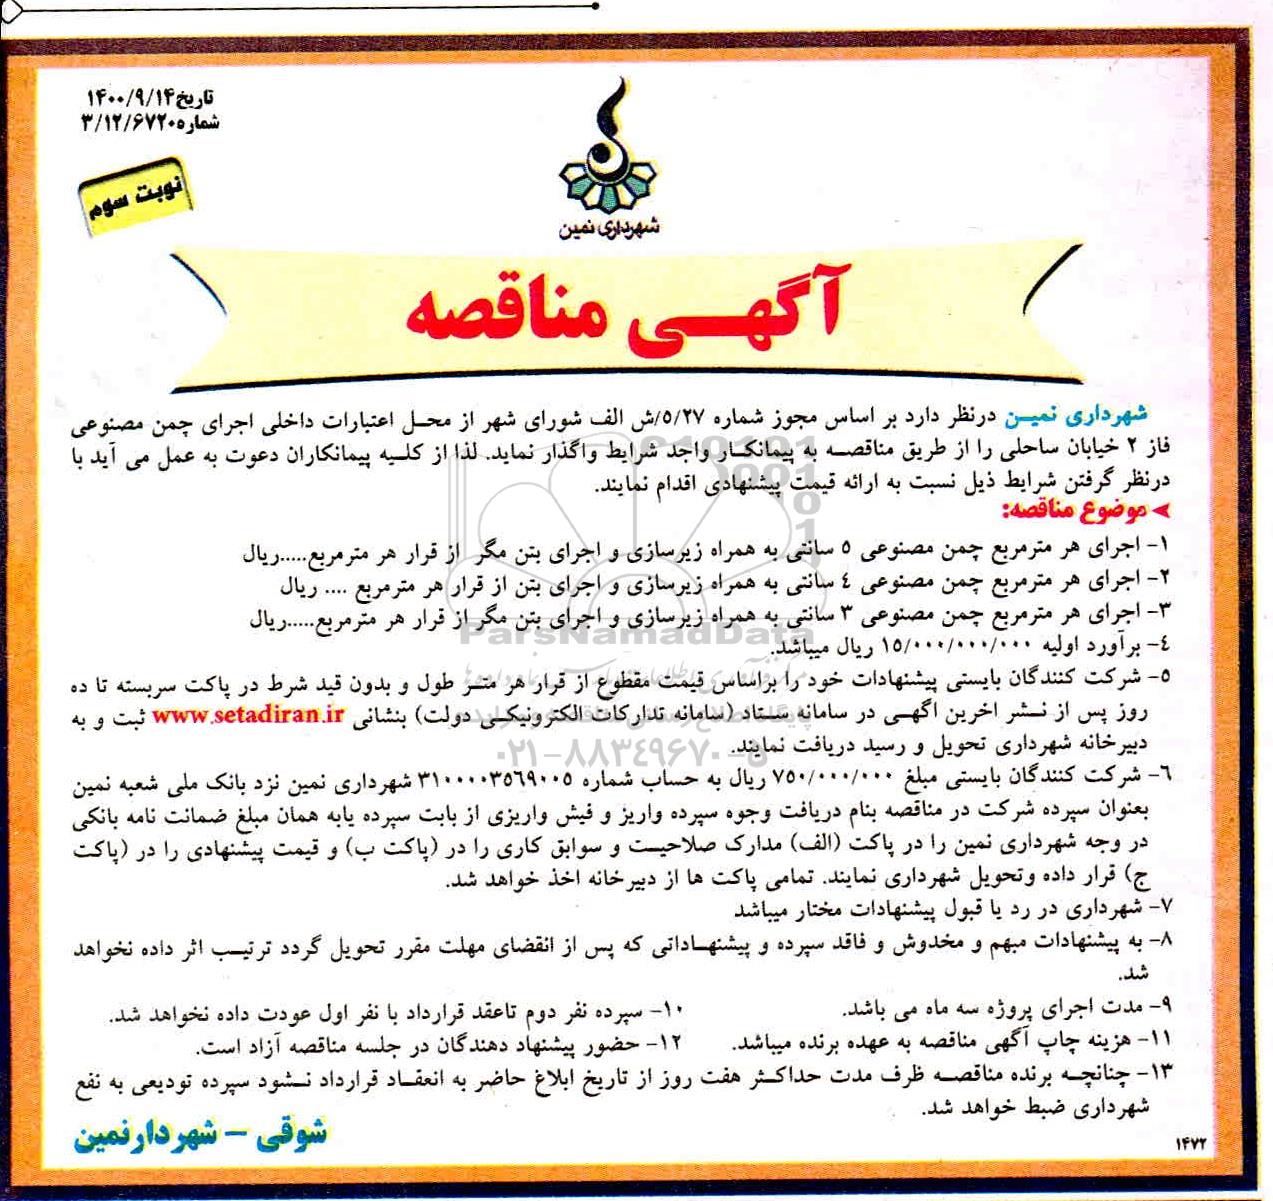 تاریخ ۱۴۰۰/۹/۱۴
شماره ۳/۱۲/۶۷۲۰
نوبت سوم
شهرداری نمین
آگهی مناقصه
شهرداری نمین درنظر دارد بر اساس مجوز شماره ۵/۲۷/ش الف شورای شهر از محل اعتبارات داخلی اجرای چمن مصنوعی
فاز ۲ خیابان ساحلی را از طریق مناقصه به پیمانکار واجد شرایط واگذار نماید. لذا از کلیه پیمانکاران دعوت به عمل می آید با
درنظر گرفتن شرایط ذیل نسبت به ارائه قیمت پیشنهادی اقدام نمایند.
موضوع مناقصه:
۱- اجرای هر مترمربع چمن مصنوعی ۵ سانتی به همراه زیرسازی و اجرای بتن مگر از قرار هر مترمربع.....ریال
۲- اجرای هر مترمربع چمن مصنوعی ٤ سانتی به همراه زیرسازی و اجرای بتن از قرار هر مترمربع .... ریال
۳- اجرای هر مترمربع چمن مصنوعی ۳ سانتی به همراه زیرسازی و اجرای بتن مگر از قرار هر مترمربع.....ریال
ParsNamadData
٤- برآورد اولیه ۱۵/۰۰۰/۰۰۰/۰۰۰ ریال میباشد.
۵- شرکت کنندگان بایستی پیشنهادات خود را براساس قیمت مقطوع از قرار هر متر طول و بدون قید شرط در پاکت سربسته تا ده
روز پس از نشر اخرین اگهی در سامانه ستاد (سامانه تدارکات الکترونیکی دولت) بنشانی www.setadiran.ir ثبت و به
دبیرخانه شهرداری تحویل و رسید دریافت نمایند.
۰۲۱-۸۸۳۴۹۶۷۰-۵
۶- شرکت کنندگان بایستی مبلغ ۷۵۰/۰۰۰/۰۰۰ ریال به حساب شماره ۳۱۰۰۰۰۳۵۶۹۰۰۵ شهرداری نمین نزد بانک ملی شعبه نمین
بعنوان سپرده شرکت در مناقصه بنام دریافت وجوه سپرده واریز و فیش واریزی از بابت سپرده یابه همان مبلغ ضمانت نامه بانکی
در وجه شهرداری نمین را در پاکت (الف) مدارک صلاحیت و سوابق کاری را در (پاکت ب) و قیمت پیشنهادی را در (پاکت
ج) قرار داده وتحویل شهرداری نمایند. تمامی پاکت ها از دبیرخانه اخذ خواهد شد.
۷- شهرداری در رد یا قبول پیشنهادات مختار میباشد
۸- به پیشنهادات مبهم و مخدوش و فاقد سپرده و پیشنهاداتی که پس از انقضای مهلت مقرر تحویل گردد ترتیب اثر داده نخواهد
شد.
۹- مدت اجرای پروژه سه ماه می باشد. ۱۰- سپرده نفر دوم تاعقد قرارداد با نفر اول عودت داده نخواهد شد.
۱۱- هزینه چاپ آگهی مناقصه به عهده برنده میباشد. ۱۲- حضور پیشنهاد دهندگان در جلسه مناقصه آزاد است.
۱۳- چنانچه برنده مناقصه ظرف مدت حداکثر هفت روز از تاریخ ابلاغ حاضر به انعقاد قرارداد نشود سپرده تودیعی به نفع
شهرداری ضبط خواهد شد.
شوقی – شهردارنمین
۱۴۷۲